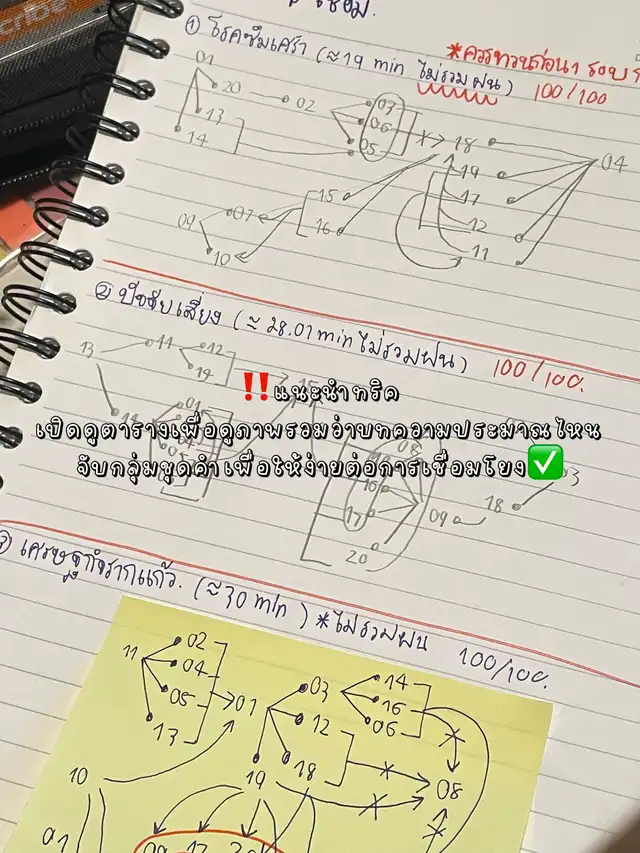 cribe
เชื่อม.
① โรคซึมเศร้า (≈19 min ไม่รวมฝน) 100/100
*ควรทวนก่อน 1 รอบ
01
20 02 03
13 06 18 04
14 05 19
15 17
09 07 16 12
10 11
② ปัจจัยเสี่ยง (≈ 28.01 min ไม่รวมฝน) 100/100.
13 11 12
19
‼️แนะนำทริค
เปิดดูตารางเพื่อดูภาพรวมว่าบทความประมาณไหน
จับกลุ่มชุดคำ เพื่อให้ง่ายต่อการเชื่อมโยง✅
17 09 18
20
③ เศรษฐกิจรากแก้ว. (≈30 min) *ไม่รวมฝน 100/100.
11 02 03 14
04 16
05 01 12 06
13 18
10 19 08